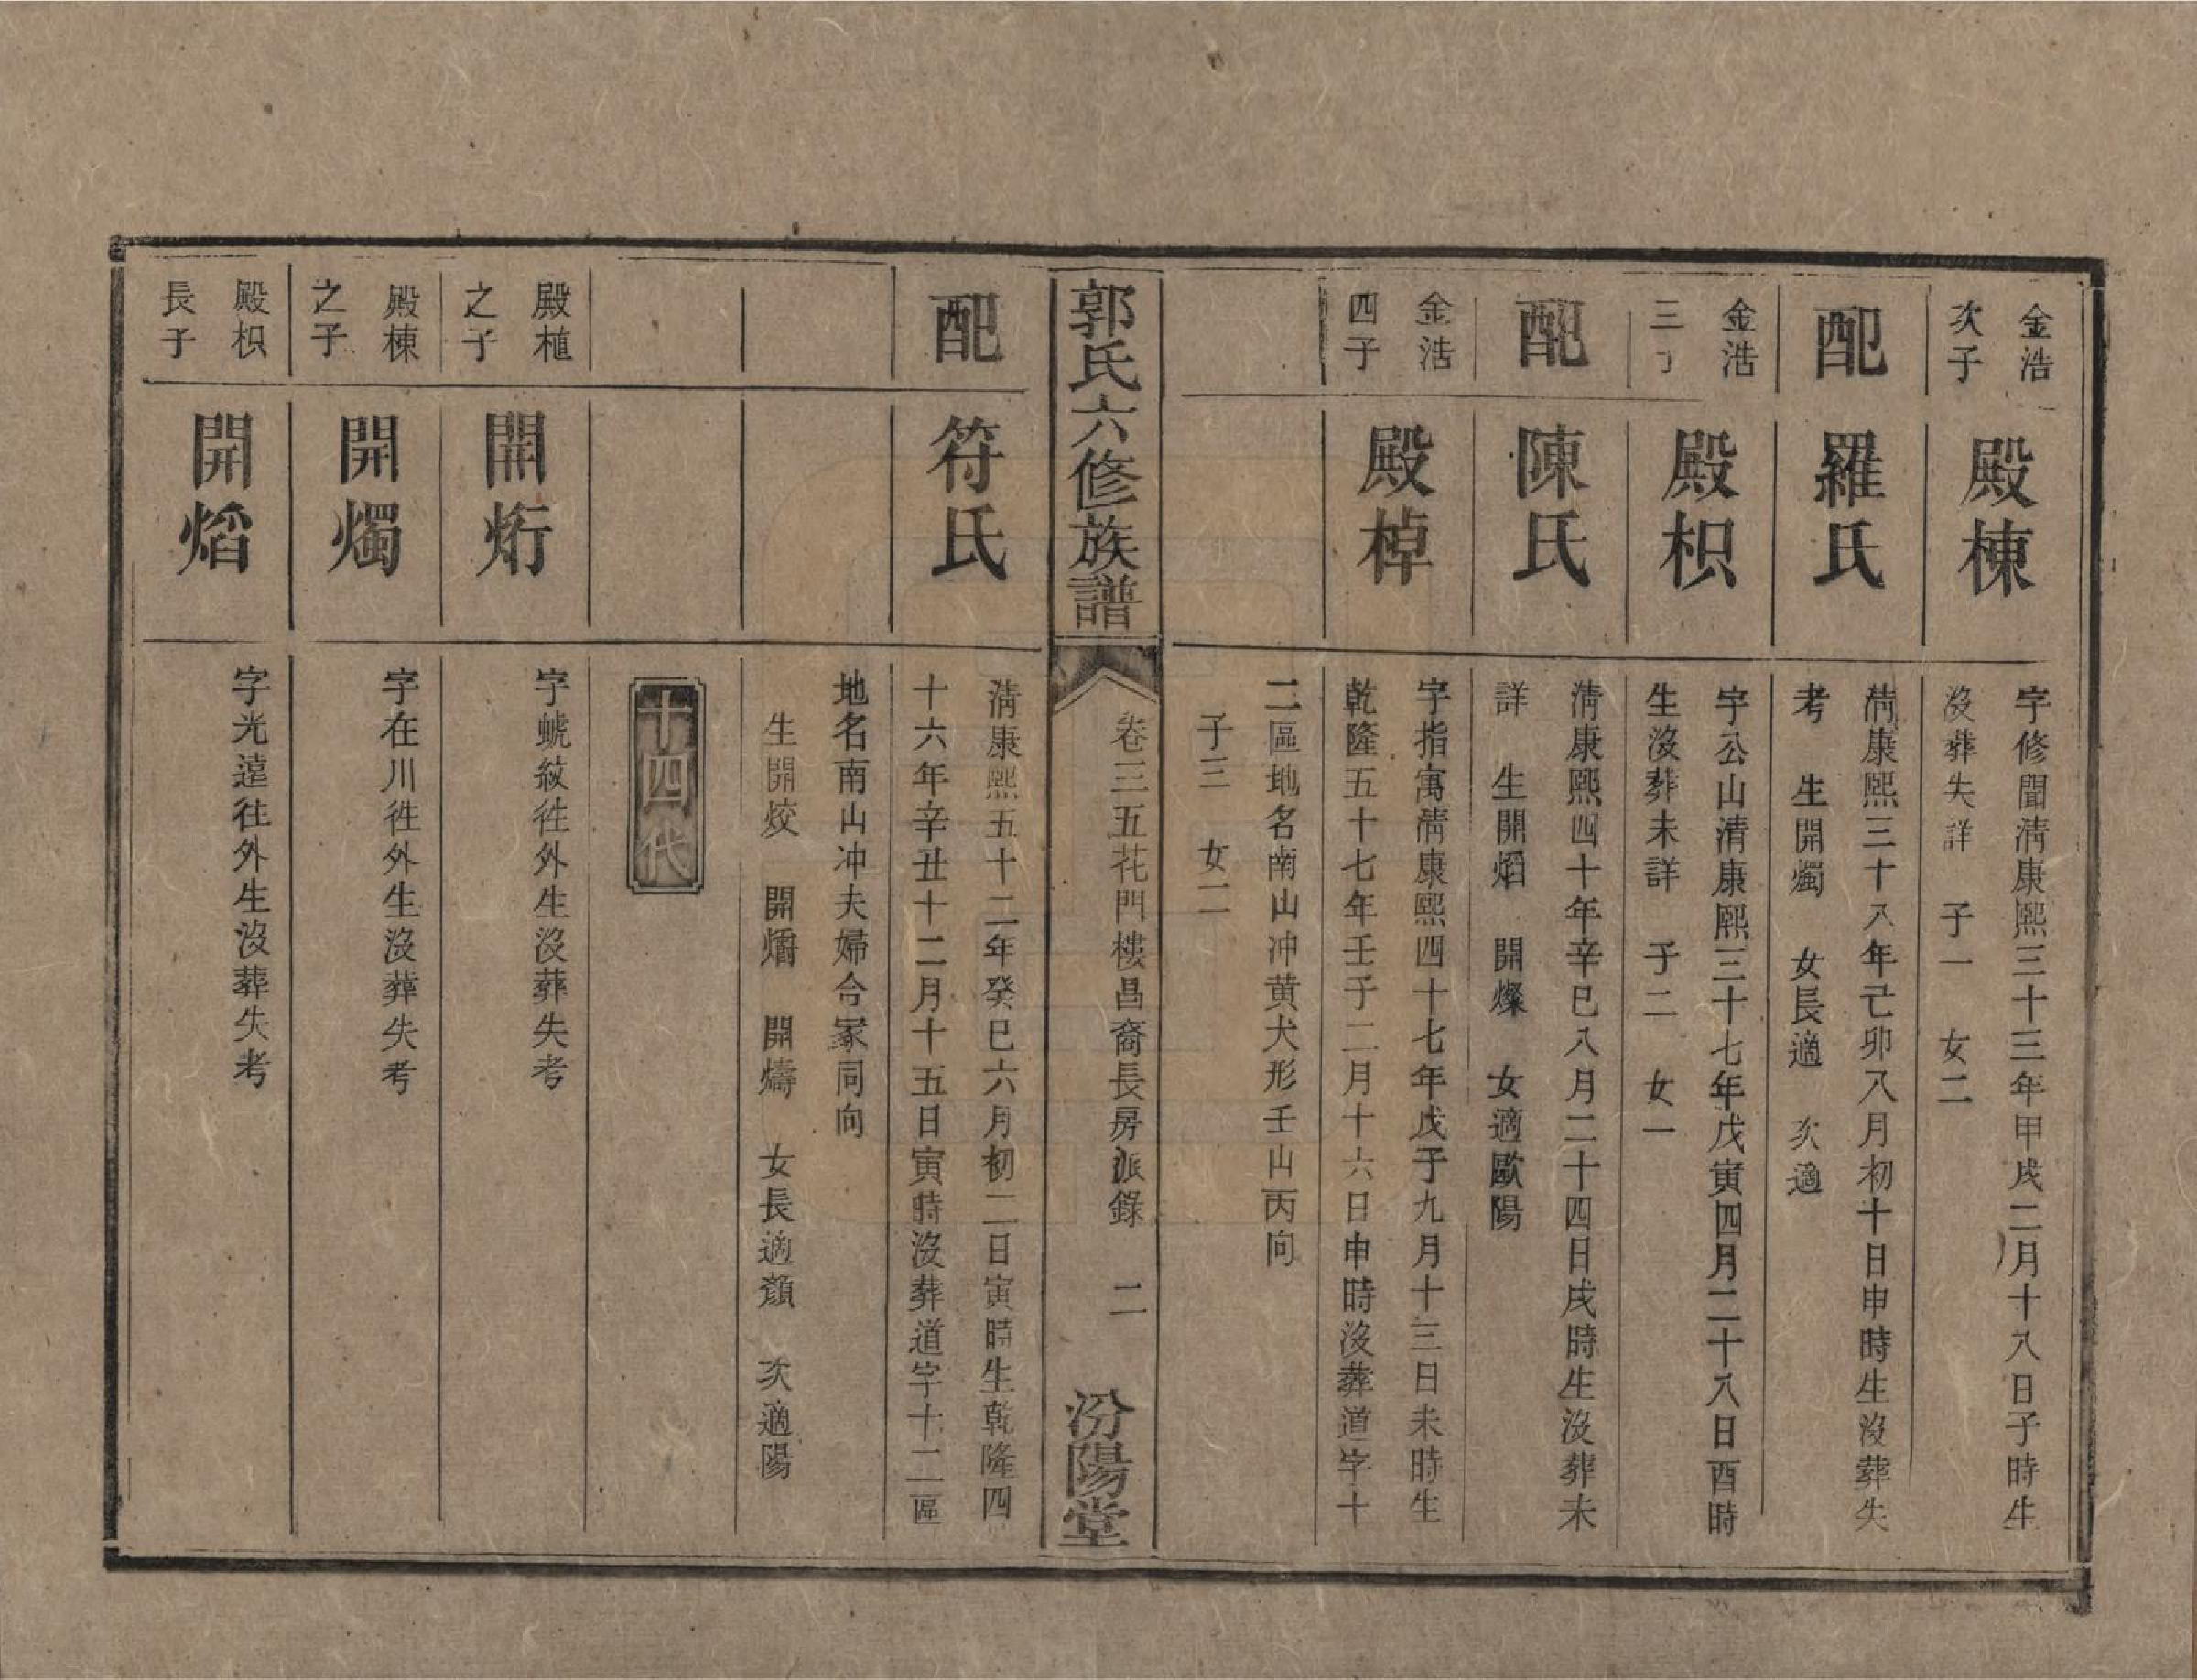 金浩
次子
殿棟
字修聞淸康熙三十三年甲戌二月十八日子時生
沒葬失詳　子一　女二
配
羅氏
淸康熙三十八年己卯八月初十日申時生沒葬失
考　生開燭　女長適　次適
金浩
三
殿枳
字公山清康熙三十七年戊寅四月二十八日酉時
生沒葬未詳　子二　女一
配
陳氏
淸康熙四十年辛巳八月二十四日戌時生沒葬未
詳　生開熖　開燦　女適歐陽
金浩
四子
殿棹
字指寓淸康熙四十七年戊子九月十三日未時生
乾隆五十七年壬子二月十六日申時沒葬道字十
二區地名南山冲黄犬形壬山丙向
子三　女二
郭氏六修族譜
卷三五花門樓昌裔長房派錄　二
汾陽堂
配
符氏
淸康熙五十二年癸巳六月初二日寅時生乾隆四
十六年辛丑十二月十五日寅時沒葬道字十二區
地名南山冲夫婦合冢同向
生開烄　開燏　開燽　女長適顏　次適陽
十四代
殿植
之子
開烆
字虢紋徃外生沒葬失考
殿棟
之子
開燭
字在川徃外生沒葬失考
殿枳
長子
開熖
字光遠徃外生沒葬失考